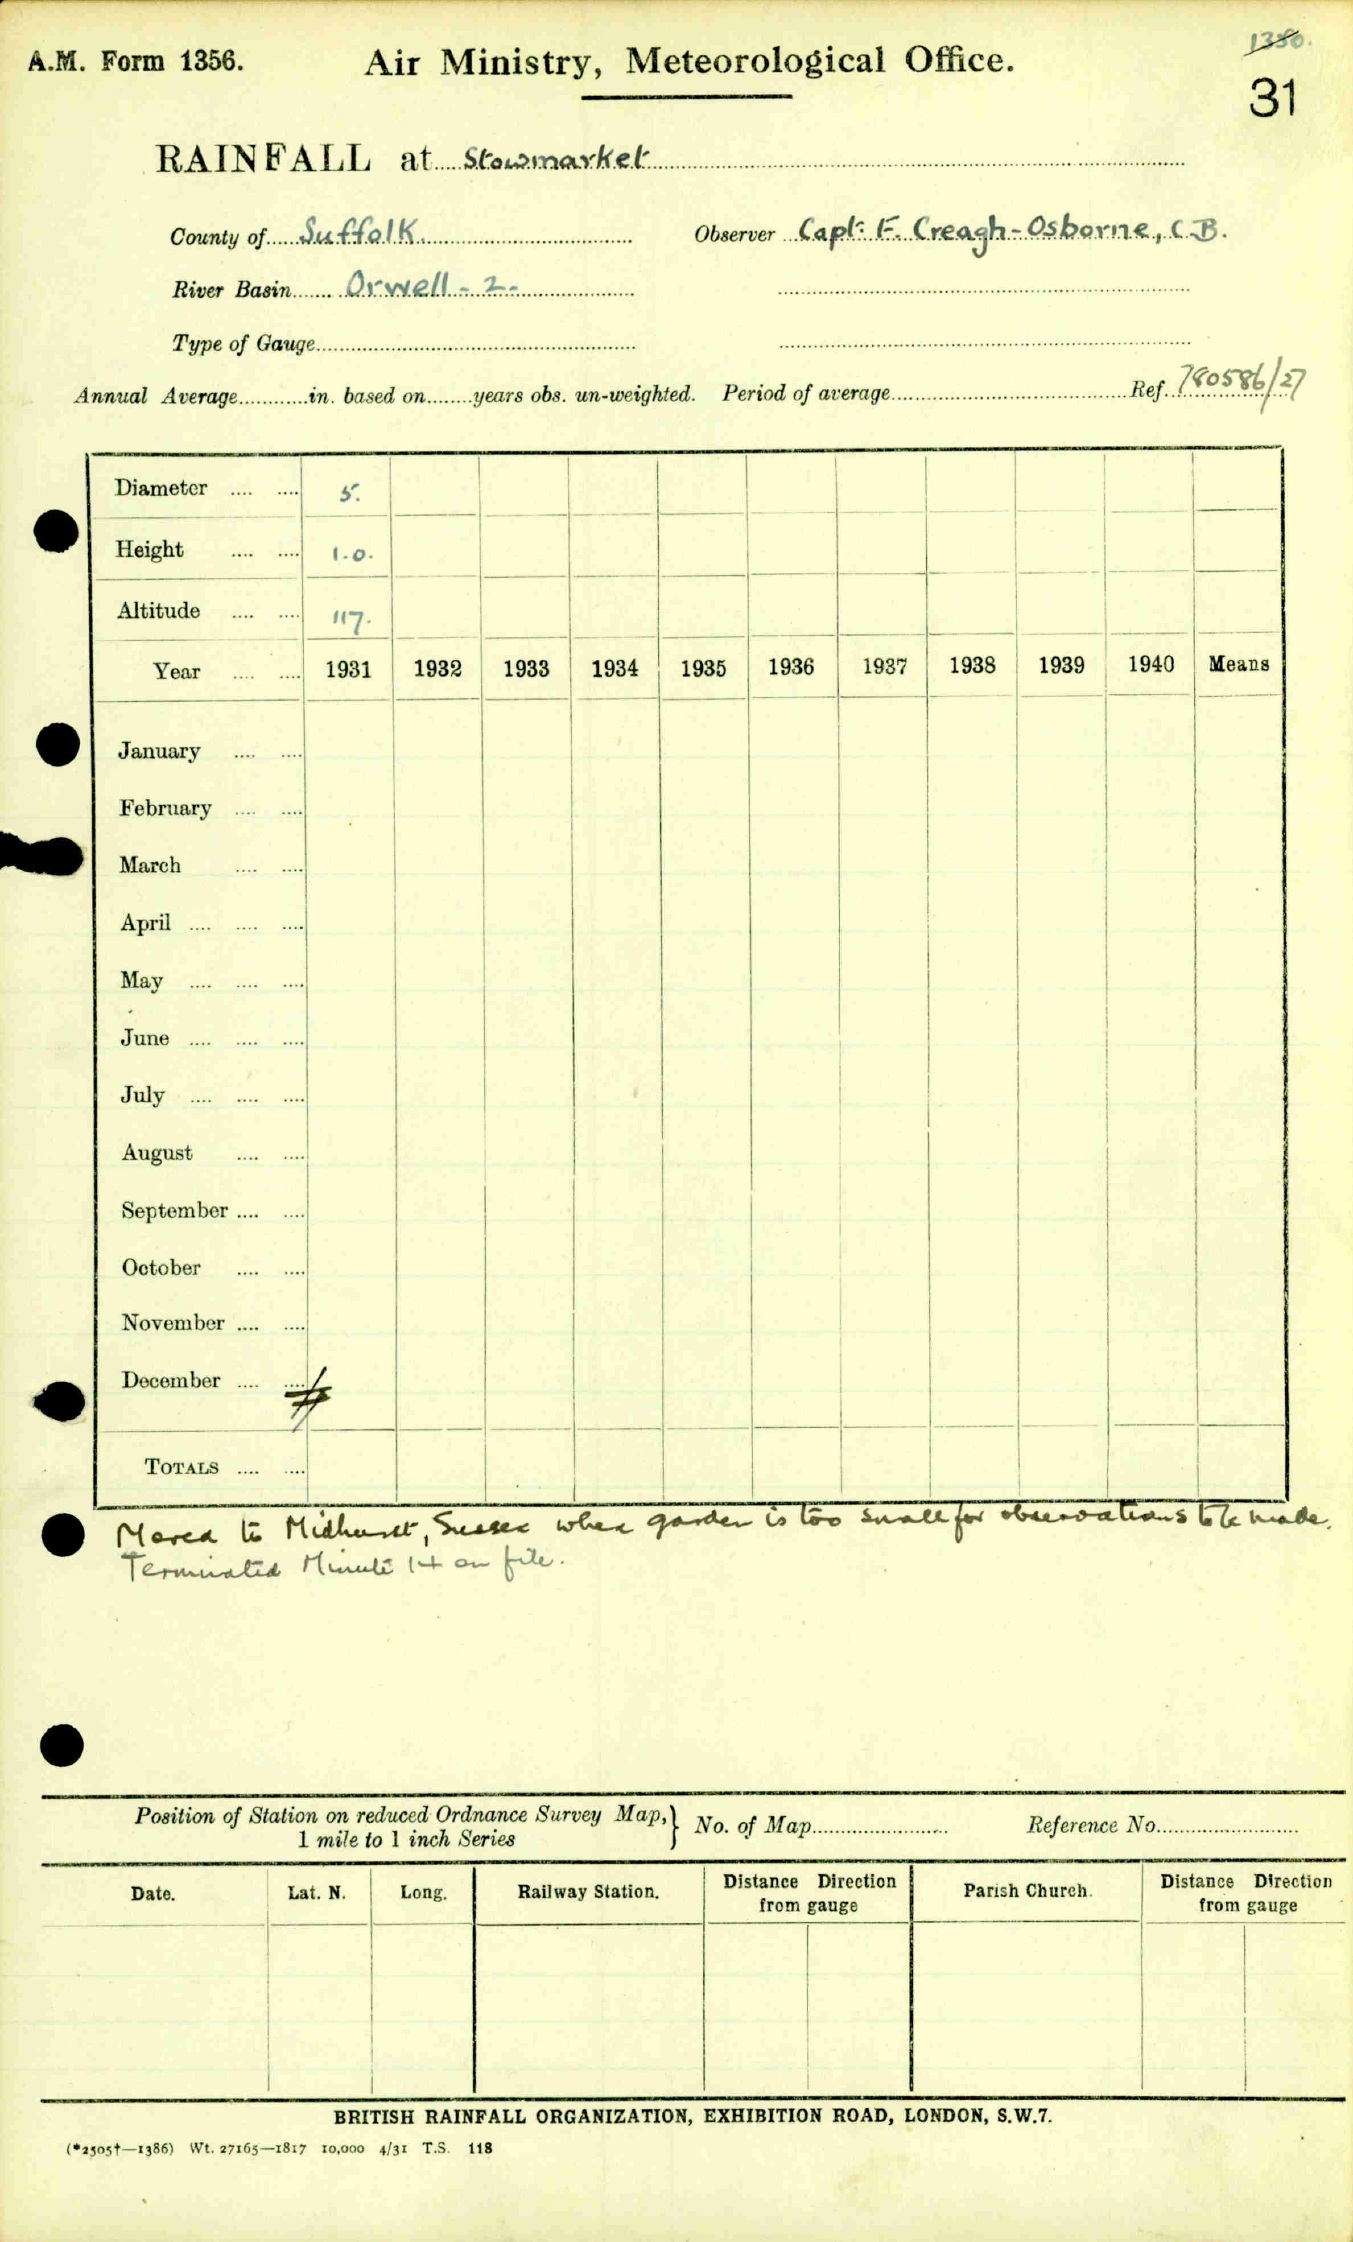 1380.
A.M. Form 1356. Air Ministry, Meteorological Office.
31
RAINFALL at Stowmarket
County of Suffolk. Observer Capt. F. Creagh-Osborne, C.B.
River Basin Orwell - 2 -
Type of Gauge
Annual Average in. based on years obs. un-weighted. Period of average Ref. 780586/27
Diameter 5.
Height 1.0.
Altitude 117.
Year 1931 1932 1933 1934 1935 1936 1937 1938 1939 1940 Means
January
February
March
April
May
June
July
August
September
October
November
December
TOTALS
Moved to Midhurst, Sussex where garden is too small for observations to be made.
Terminated Minute 14 on file.
Position of Station on reduced Ordnance Survey Map, } No. of Map Reference No.
1 mile to 1 inch Series
Date. Lat. N. Long. Railway Station. Distance Direction Parish Church. Distance Direction
from gauge from gauge
BRITISH RAINFALL ORGANIZATION, EXHIBITION ROAD, LONDON, S.W.7.
(*2505†—1386) Wt. 27165—1817 10,000 4/31 T.S. 118